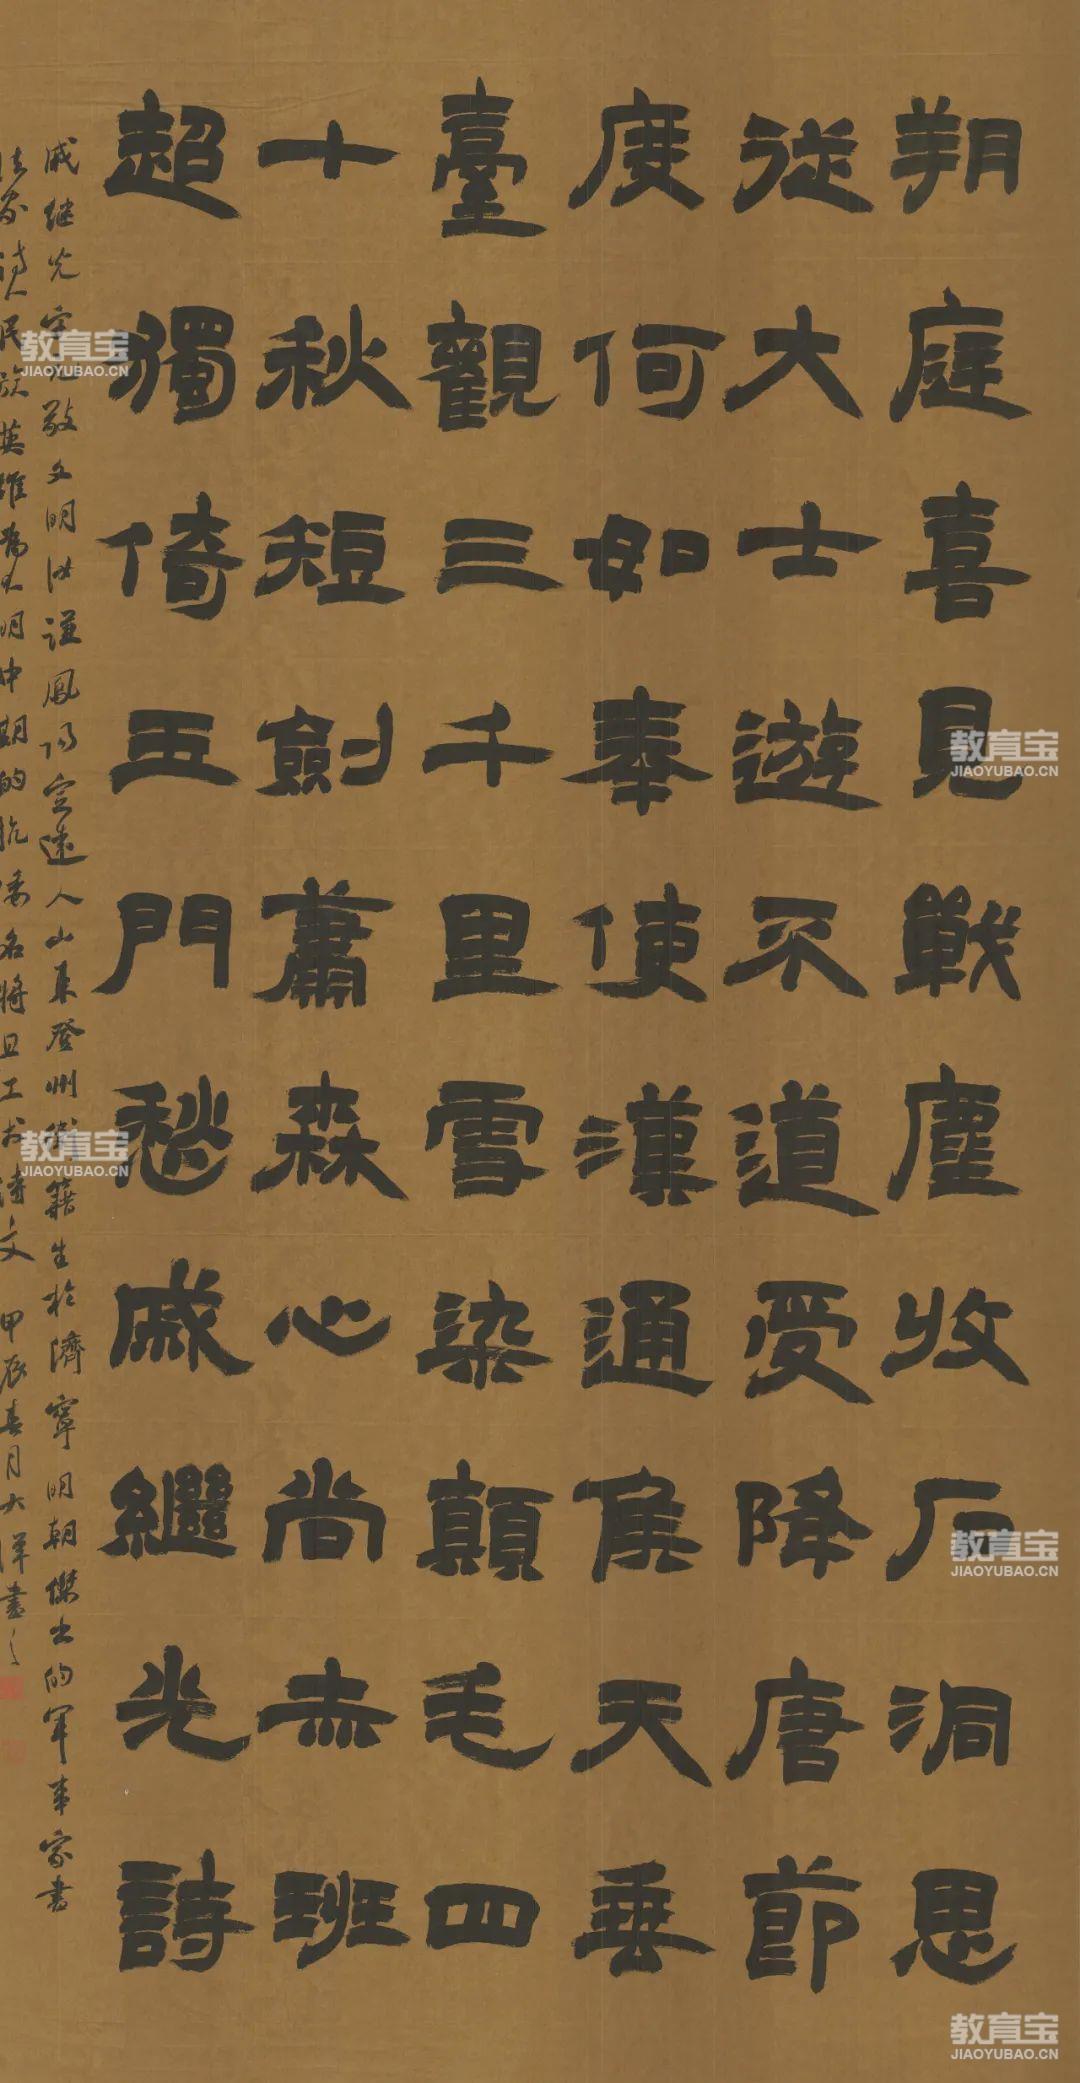 朔庭喜見戰塵收石洞思
從大士遊不道受降唐節
度何如奉使漢通侯天垂
臺觀三千里雪染顛毛四
十秋短劍蕭森心尚赤班
超獨倚玉門愁戚繼光詩
戚继光字元敬又明洪謹鳳陽定遠人山東登州衛籍生於濟寧明朝傑出的軍事家書
法家诗人民族英雄為大明中期的抗倭名將且工於诗文 甲辰春月大洋書之
教育宝
JIAOYUBAO.CN
教育宝
JIAOYUBAO.CN
教育宝
JIAOYUBAO.CN
教育宝
JIAOYUBAO.CN
教育宝
JIAOYUBAO.CN